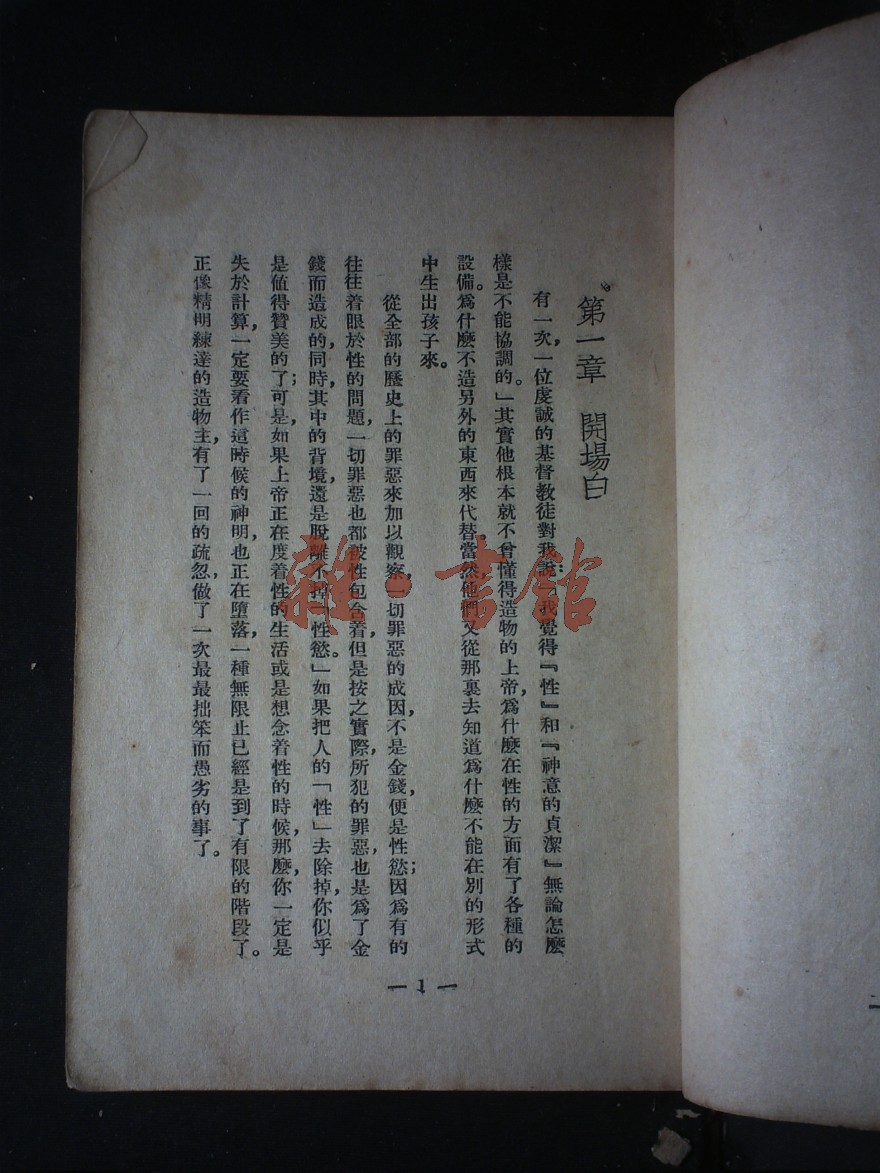 第一章　開場白
有一次，一位虔誠的基督教徒對我說：「我覺得『性』和『神意的貞潔』無論怎麼
樣是不能協調的。」其實他根本就不曾懂得造物的上帝，爲什麼在性的方面有了各種的
設備。爲什麼不造另外的東西來代替。當然，他們又從那裏去知道爲什麼不能在別的形式
中生出孩子來。
從全部的歷史上的罪惡來加以觀察，一切罪惡的成因，不是金錢，便是性慾；因爲有的
往往着眼於性的問題，一切罪惡也都被性包含着，但是按之實際，所犯的罪惡，也是爲了金
錢而造成的，同時，其中的背境，還是脫離不掉「性慾。」如果把人的「性」去除掉，你似乎
是値得贊美的了；可是，如果上帝正在度着性的生活或是想念着性的時候，那麼，你一定是
失於計算，一定要看作這時候的神明，也正在墮落，一種無限止已經是到了有限的階段了。
正像精明練達的造物主，有了一回的疏忽，做了一次最最拙笨而愚劣的事了。
— 1 —
雜·書館